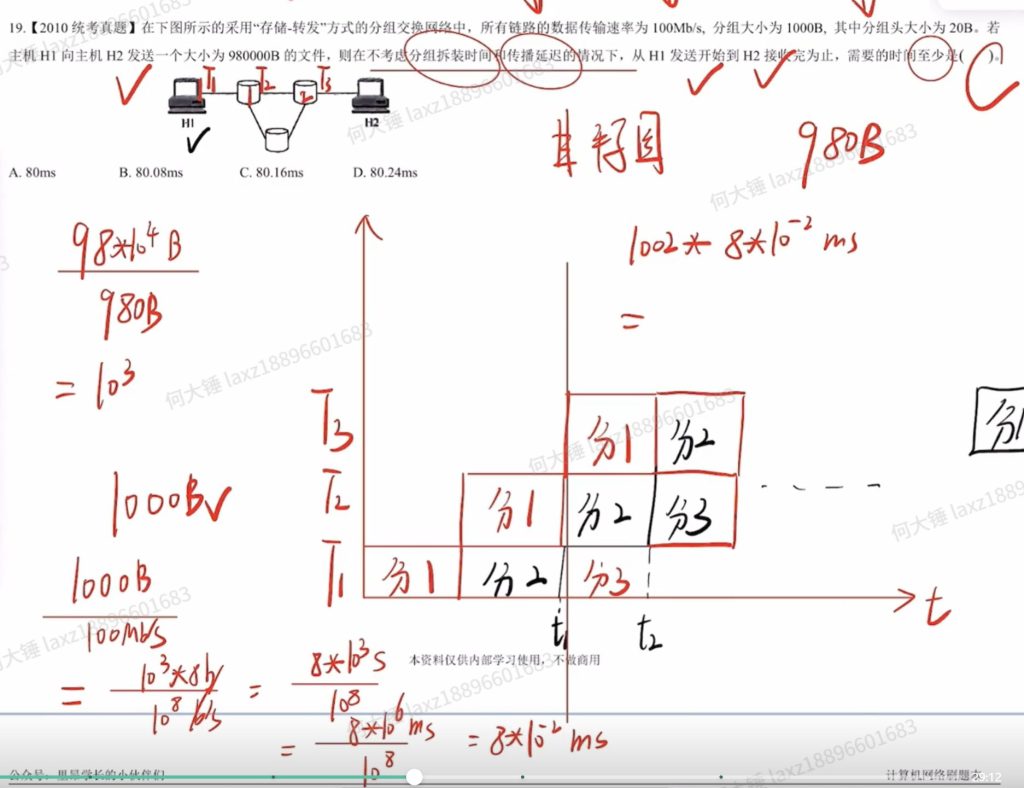 19.【2010 统考真题】在下图所示的采用“存储-转发”方式的分组交换网络中，所有链路的数据传输速率为 100Mb/s, 分组大小为 1000B, 其中分组头大小为 20B。若
主机 H1 向主机 H2 发送一个大小为 980000B 的文件，则在不考虑分组拆装时间和传播延迟的情况下，从 H1 发送开始到 H2 接收完为止，需要的时间至少是( )。
C
T1 T2 T3
1 2
H1 H2
甘特图
980B
A. 80ms B. 80.08ms C. 80.16ms D. 80.24ms
98*10^4 B
980B
= 10^3
1002 * 8*10^-2 ms
=
1000B
1000B
100Mb/s
= 10^3*8b
10^8 b/s
= 8*10^3 s
10^8
= 8*10^6 ms
10^8
= 8*10^-2 ms
T3 分1 分2
T2 分1 分2 分3
T1 分1 分2 分3
t1 t2 t
分1
本资料仅供内部学习使用，不做商用
计算机网络刷题本
29:12
何大锤 laxz18896601683
何大锤 laxz18896601683
何大锤 laxz18896601683
何大锤 laxz18896601683
何大锤 laxz18896601683